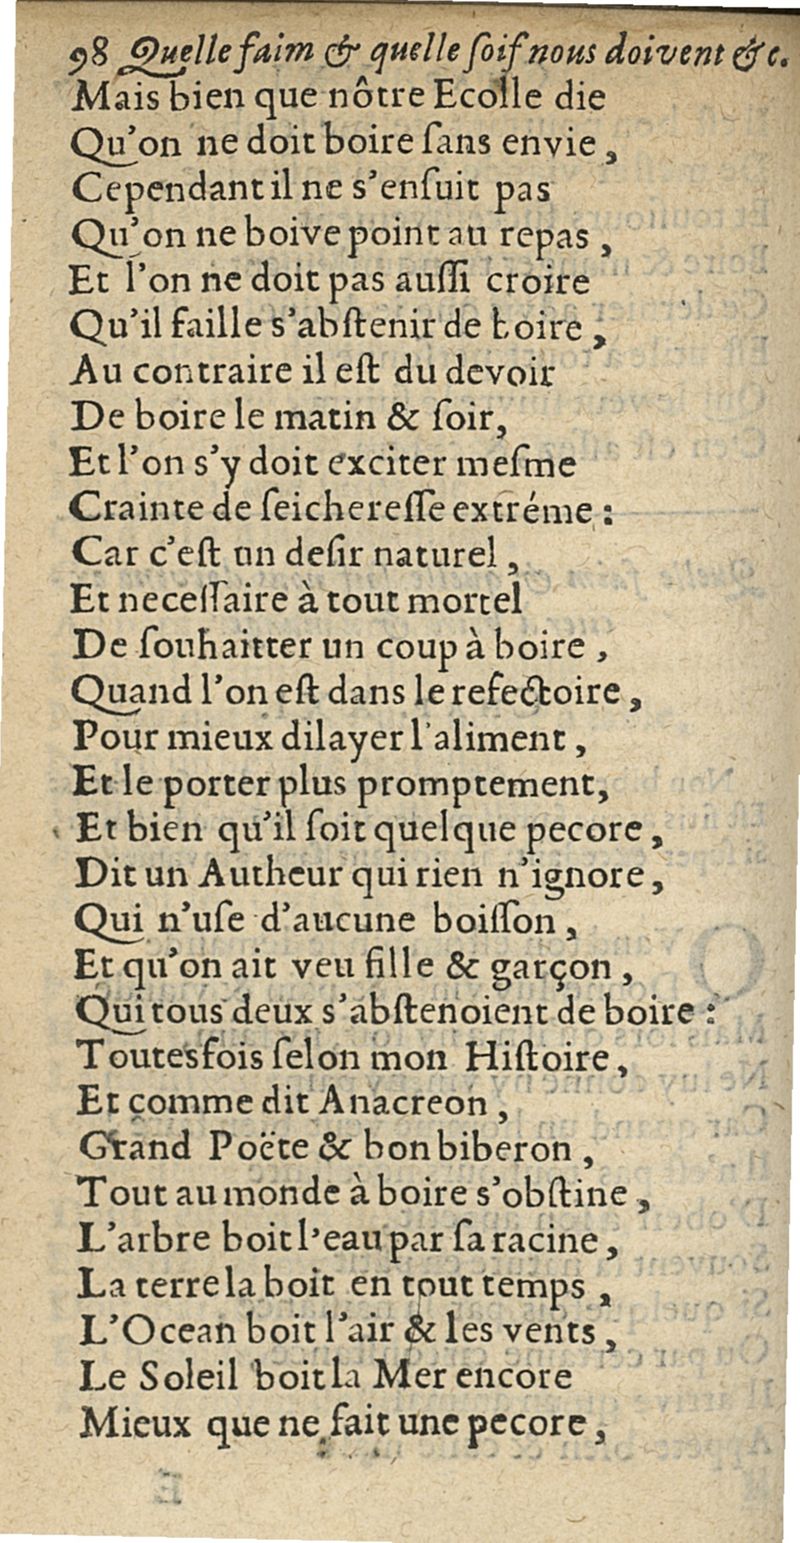 98 Quelle faim & quelle ſoif nous doivent &c.
Mais bien que nôtre Ecolle die
Qu'on ne doit boire ſans envie,
Cependant il ne s'enſuit pas
Qu'on ne boive point au repas,
Et l'on ne doit pas auſſi croire
Qu'il faille s'abſtenir de boire,
Au contraire il eſt du devoir
De boire le matin & ſoir,
Et l'on s'y doit exciter meſme
Crainte de ſeichereſſe extréme :
Car c'eſt un deſir naturel,
Et neceſſaire à tout mortel
De ſouhaitter un coup à boire,
Quand l'on eſt dans le refectoire,
Pour mieux dilayer l'aliment,
Et le porter plus promptement,
Et bien qu'il ſoit quelque pecore,
Dit un Autheur qui rien n'ignore,
Qui n'uſe d'aucune boiſſon,
Et qu'on ait veu fille & garçon,
Qui tous deux s'abſtenoient de boire :
Toutesfois ſelon mon Hiſtoire,
Et comme dit Anacreon,
Grand Poëte & bon biberon,
Tout au monde à boire s'obſtine,
L'arbre boit l'eau par ſa racine,
La terre la boit en tout temps,
L'Ocean boit l'air & les vents,
Le Soleil boit la Mer encore
Mieux que ne fait une pecore,